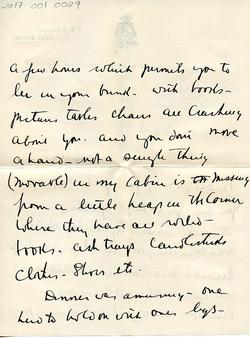 2017 001 0029
a few hours which permits you to
lie in your bunk. with books -
pictures tables chairs are crashing
about you. and you don't move
a hand - not a single thing
(movable) in my cabin is missing
from a little heap in the corner
where they have all rolled -
books. ash trays candlesticks
clothes - shoes etc.
Dinner was amusing - one
had to hold on with ones legs -